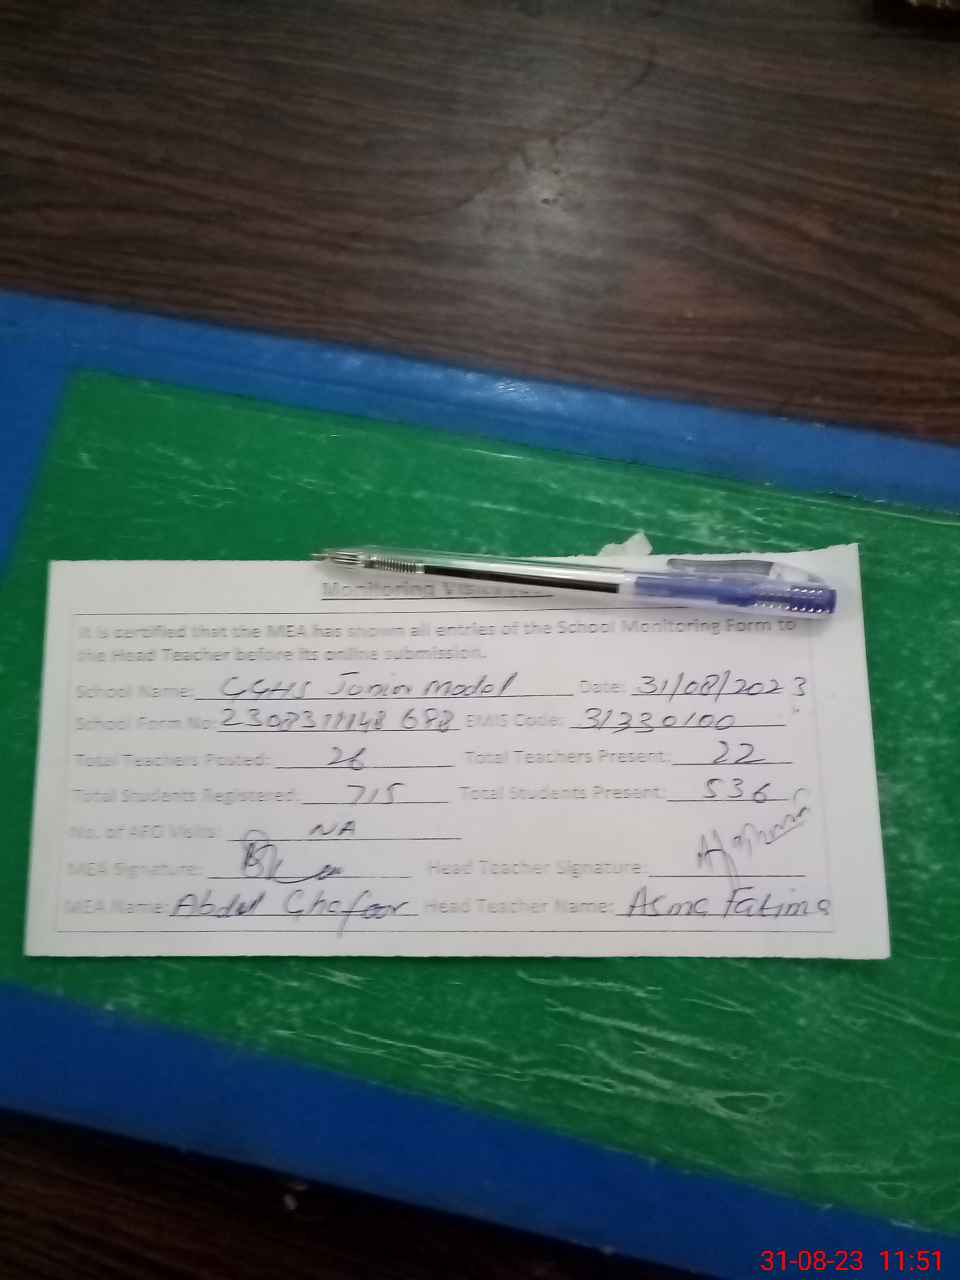 Monitoring
It is certified that the MEA has shown all entries of the School Monitoring Form to
the Head Teacher before its online submission.
School Name: GGHS Junior Model Date: 31/08/2023
School Form No: EMIS Code: 31230100
Total Teachers Posted: 26 Total Teachers Present: 22
Total Students Registered: 715 Total Students Present: 536
No. of AEO Visits: NA
MEA Signature: Head Teacher Signature:
MEA Name: Abdul Ghafoor Head Teacher Name: Asma Fatima
31-08-23 11:51